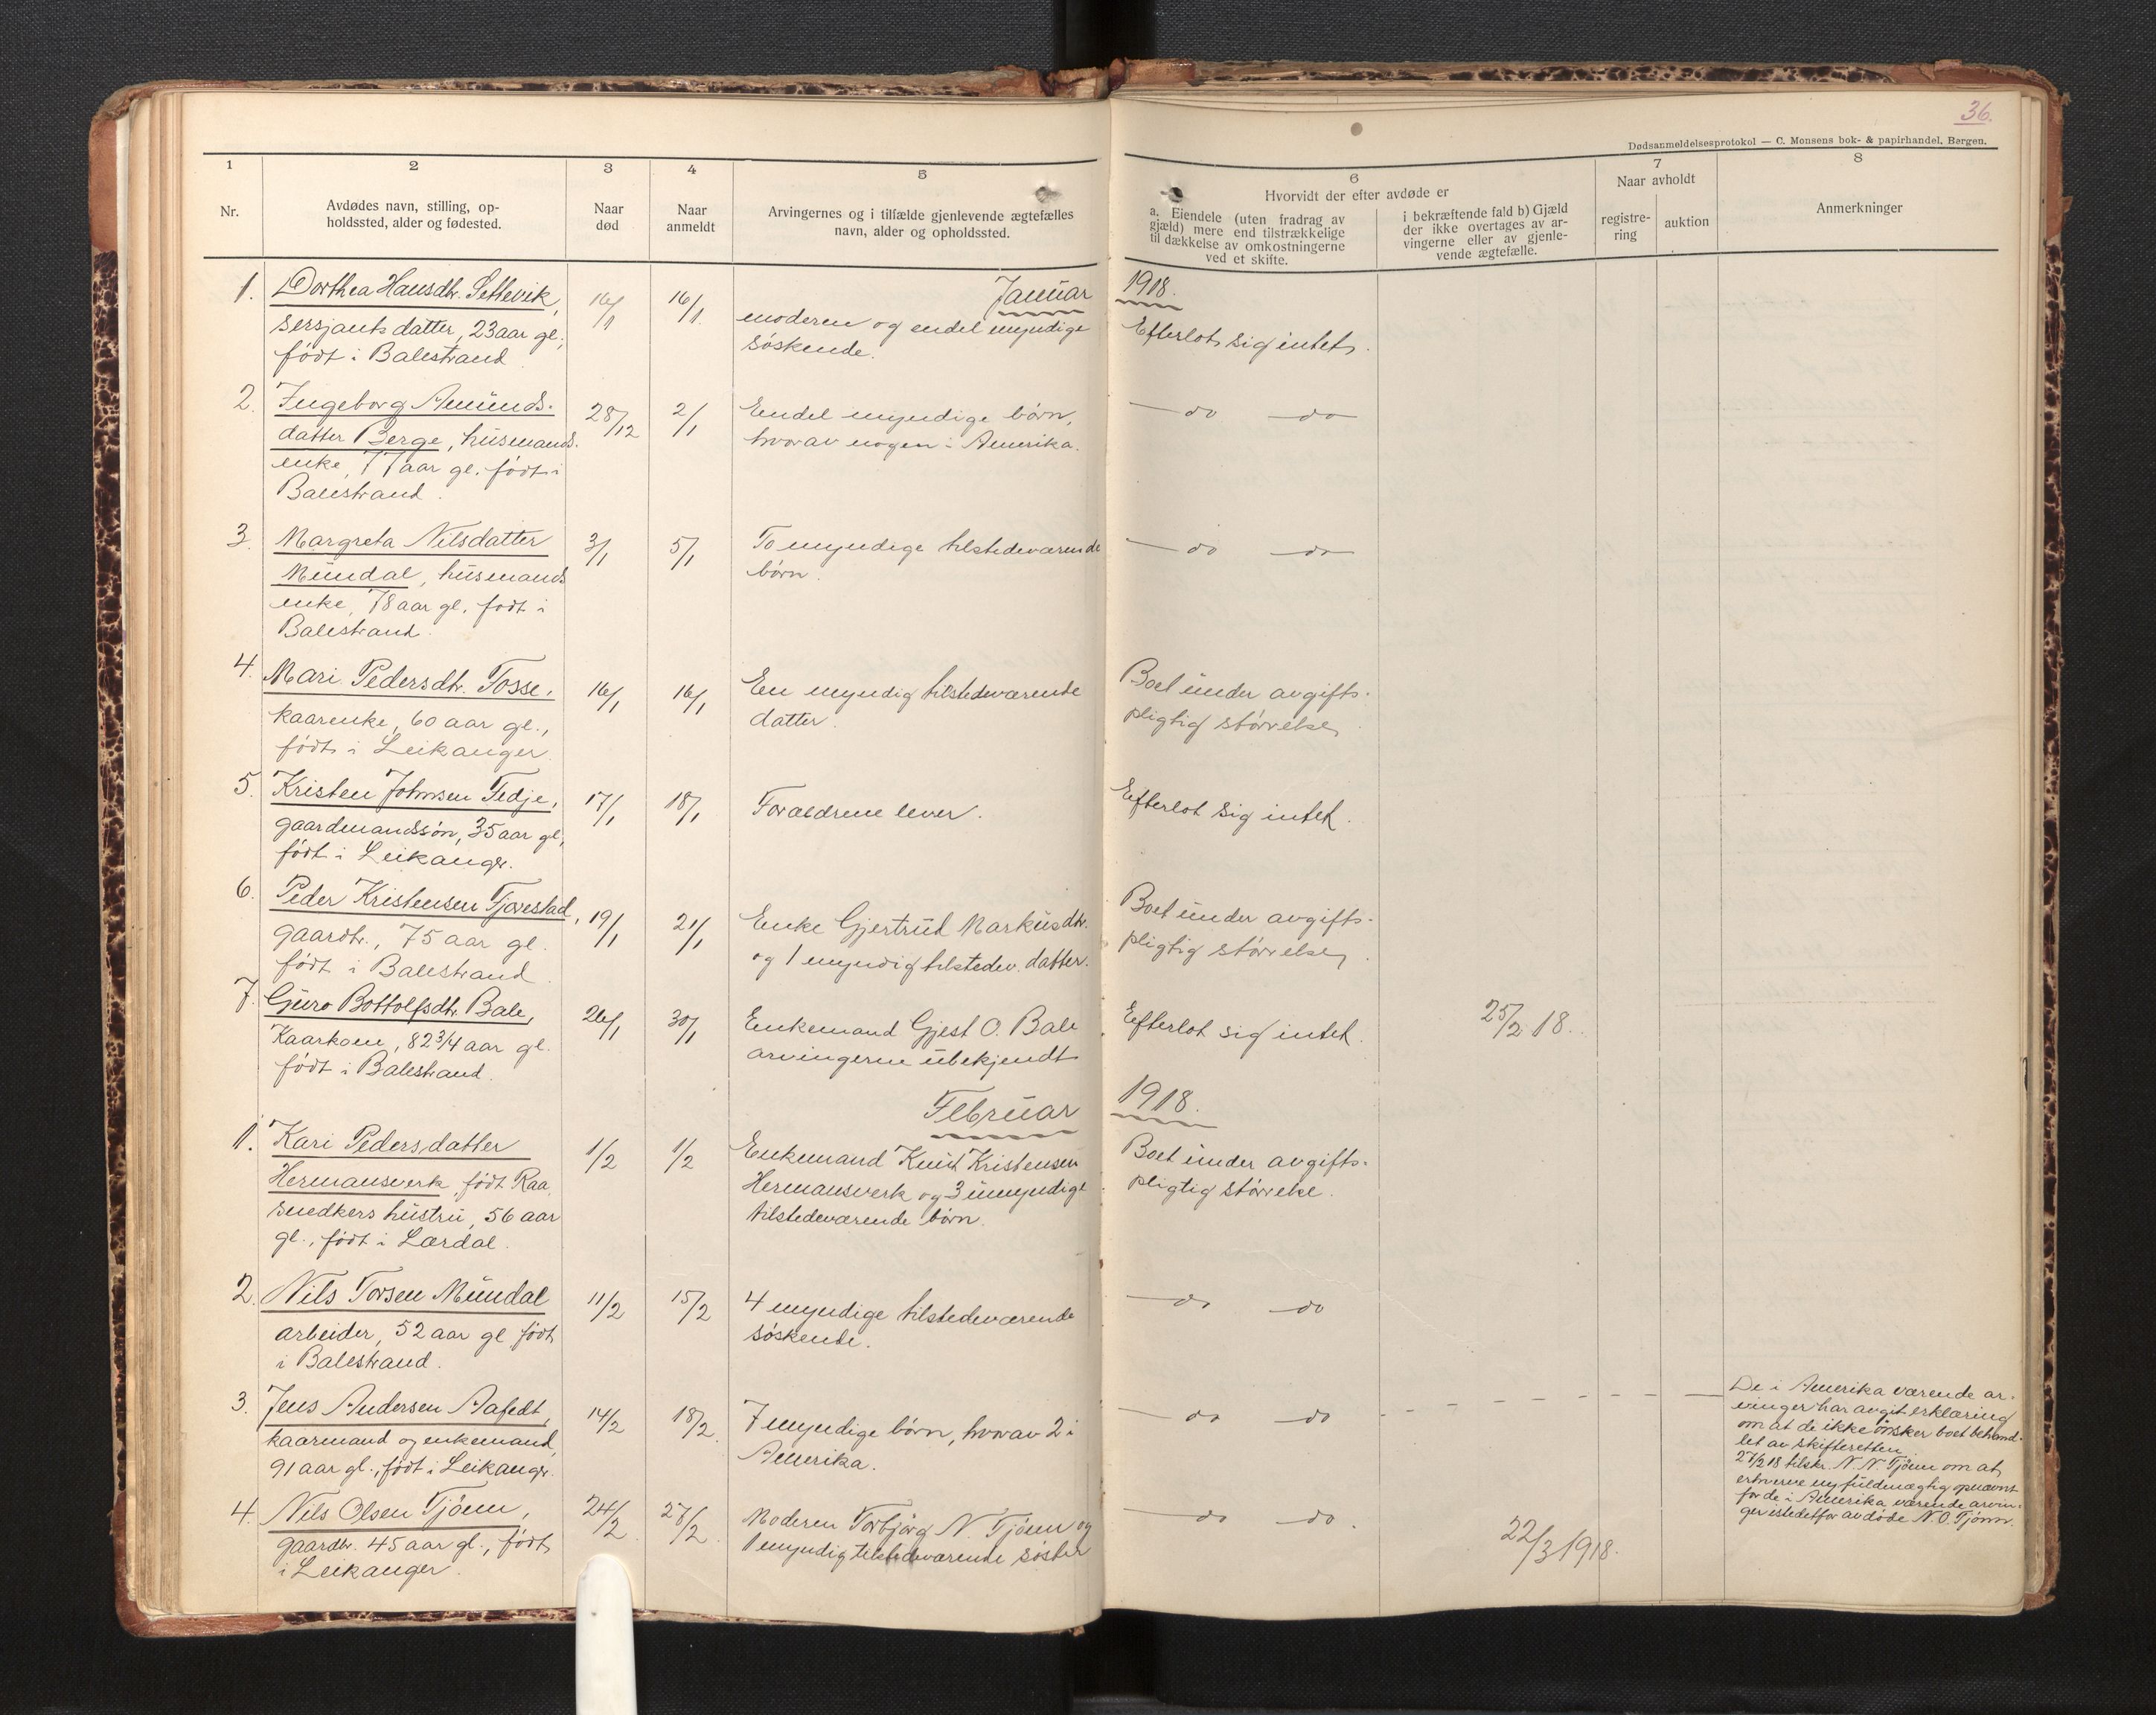 36.
Dødsanmeldelsesprotokol — C. Monsens bok- & papirhandel, Bergen.
1
Nr.
2
Avdødes navn, stilling, op-
holdssted, alder og fødested.
3
Naar
død
4
Naar
anmeldt
5
Arvingernes og i tilfælde gjenlevende ægtefælles
navn, alder og opholdssted.
6
Hvorvidt der efter avdøde er
a. Eiendele (uten fradrag av
gjæld) mere end tilstrækkelige
til dækkelse av omkostningerne
ved et skifte.
i bekræftende fald b) Gjæld
der ikke overtages av ar-
vingerne eller av gjenle-
vende ægtefælle.
7
Naar avholdt
registre-
ring
auktion
8
Anmerkninger
Januar 1918.
1.
Dorthea Hansdtr. Settevik,
sersjants datter, 23 aar gl.,
født i Balestrand
16/1
16/1.
moderen og endel myndige
søskende.
Efterlot sig intet.
2.
Ingeborg Amunds-
datter Berge, husmands-
enke, 77 aar gl. født i
Balestrand.
28/12
2/1
Endel myndige børn,
hvorav nogen i Amerika.
— do — do —
3.
Margreta Nilsdatter
Mundal, husmands
enke, 78 aar gl. født i
Balestrand.
3/1
5/1
To myndige tilstedeværende
børn.
— do — do —
4.
Mari Pedersdtr. Tosse,
kaarenke, 60 aar gl.,
født i Leikanger.
16/1
16/1
En myndig tilstedeværende
datter.
Boet under avgifts-
pligtig størrelse.
5.
Kristen Johnsen Tedje,
gaardmandssøn, 35 aar gl.,
født i Leikanger.
17/1
18/1
Forældrene lever.
Efterlot sig intet.
6.
Peder Kristensen Tjorestad,
gaardbr., 75 aar gl.
født i Balestrand
19/1
21/1
Enke Gjertrud Markusdtr.
og 1 myndig tilstedev. datter.
Boet under avgifts-
pligtig størrelse.
7.
Guro Bottolfsdtr. Bale,
Kaarkone, 82 3/4 aar gl.
født i Balestrand.
26/1
30/1
Enkemand Gjest O. Bale
arvingerne ubekjendt
Efterlot sig intet.
25/2 18.
Februar 1918.
1.
Kari Pedersdatter
Hermansverk, født Raa,
snedkers hustru, 56 aar
gl., født i Lærdal.
1/2
1/2
Enkemand Knut Kristensen
Hermansverk og 3 umyndige
tilstedeværende børn.
Boet under avgifts-
pligtig størrelse.
2.
Nils Torsen Mundal
arbeider, 52 aar gl født
i Balestrand.
11/2
15/2
4 myndige tilstedeværende
søskende.
— do — do
3.
Jens Andersen Aafedt,
kaarmand og enkemand,
91 aar gl., født i Leikanger.
14/2
18/2.
7 myndige børn, hvorav 2 i
Amerika.
— do — do
De i Amerika værende ar-
vinger har avgit erklæring
om at de ikke ønsker boet behand-
let av skifteretten.
27/2 18 tilskr. N. N. Tjønn om at
erhverve ny fuldmægtig opnævnt
for de i Amerika værende arvin-
ger istedetfor avdøde N. O. Tjønn.
4.
Nils Olsen Tjønn,
gaardbr. 45 aar gl., født
i Leikanger.
24/2
28/2.
Moderen Torbjørg N. Tjønn og
1 myndig tilstedeværende søster
— do — do.
22/3 1918.